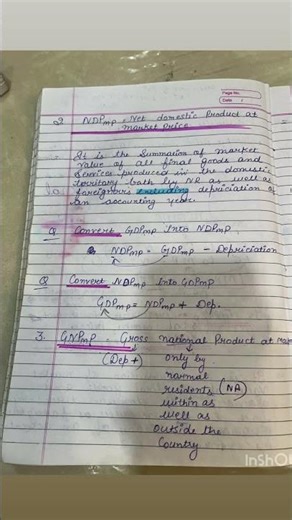 Page No.
Date
2. NDPmp = Net domestic Product at
market price
It is the Summation of market
value of all final goods and
services produced in the domestic
territory both by NR as well as
foreigners excluding depriciation of
an accounting year
Q Convert GDPmp Into NDPmp
NDPmp = GDPmp - Depriciation
Q Convert NDPmp Into GDPmp
GDPmp = NDPmp + Dep.
3. GNPmp - Gross national Product at
(Dep +) only by
normal
residents (NR)
within as
well as
outside the
Country
InShO